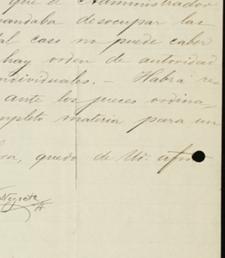 que el Administrador
mandaba desocupar las
tal caso no puede caber
hay orden de autoridad
individuales. — Habrá re
ante los jueces ordina
ompleto materia para un
ra, quedo de Ud. afmo
Negrete